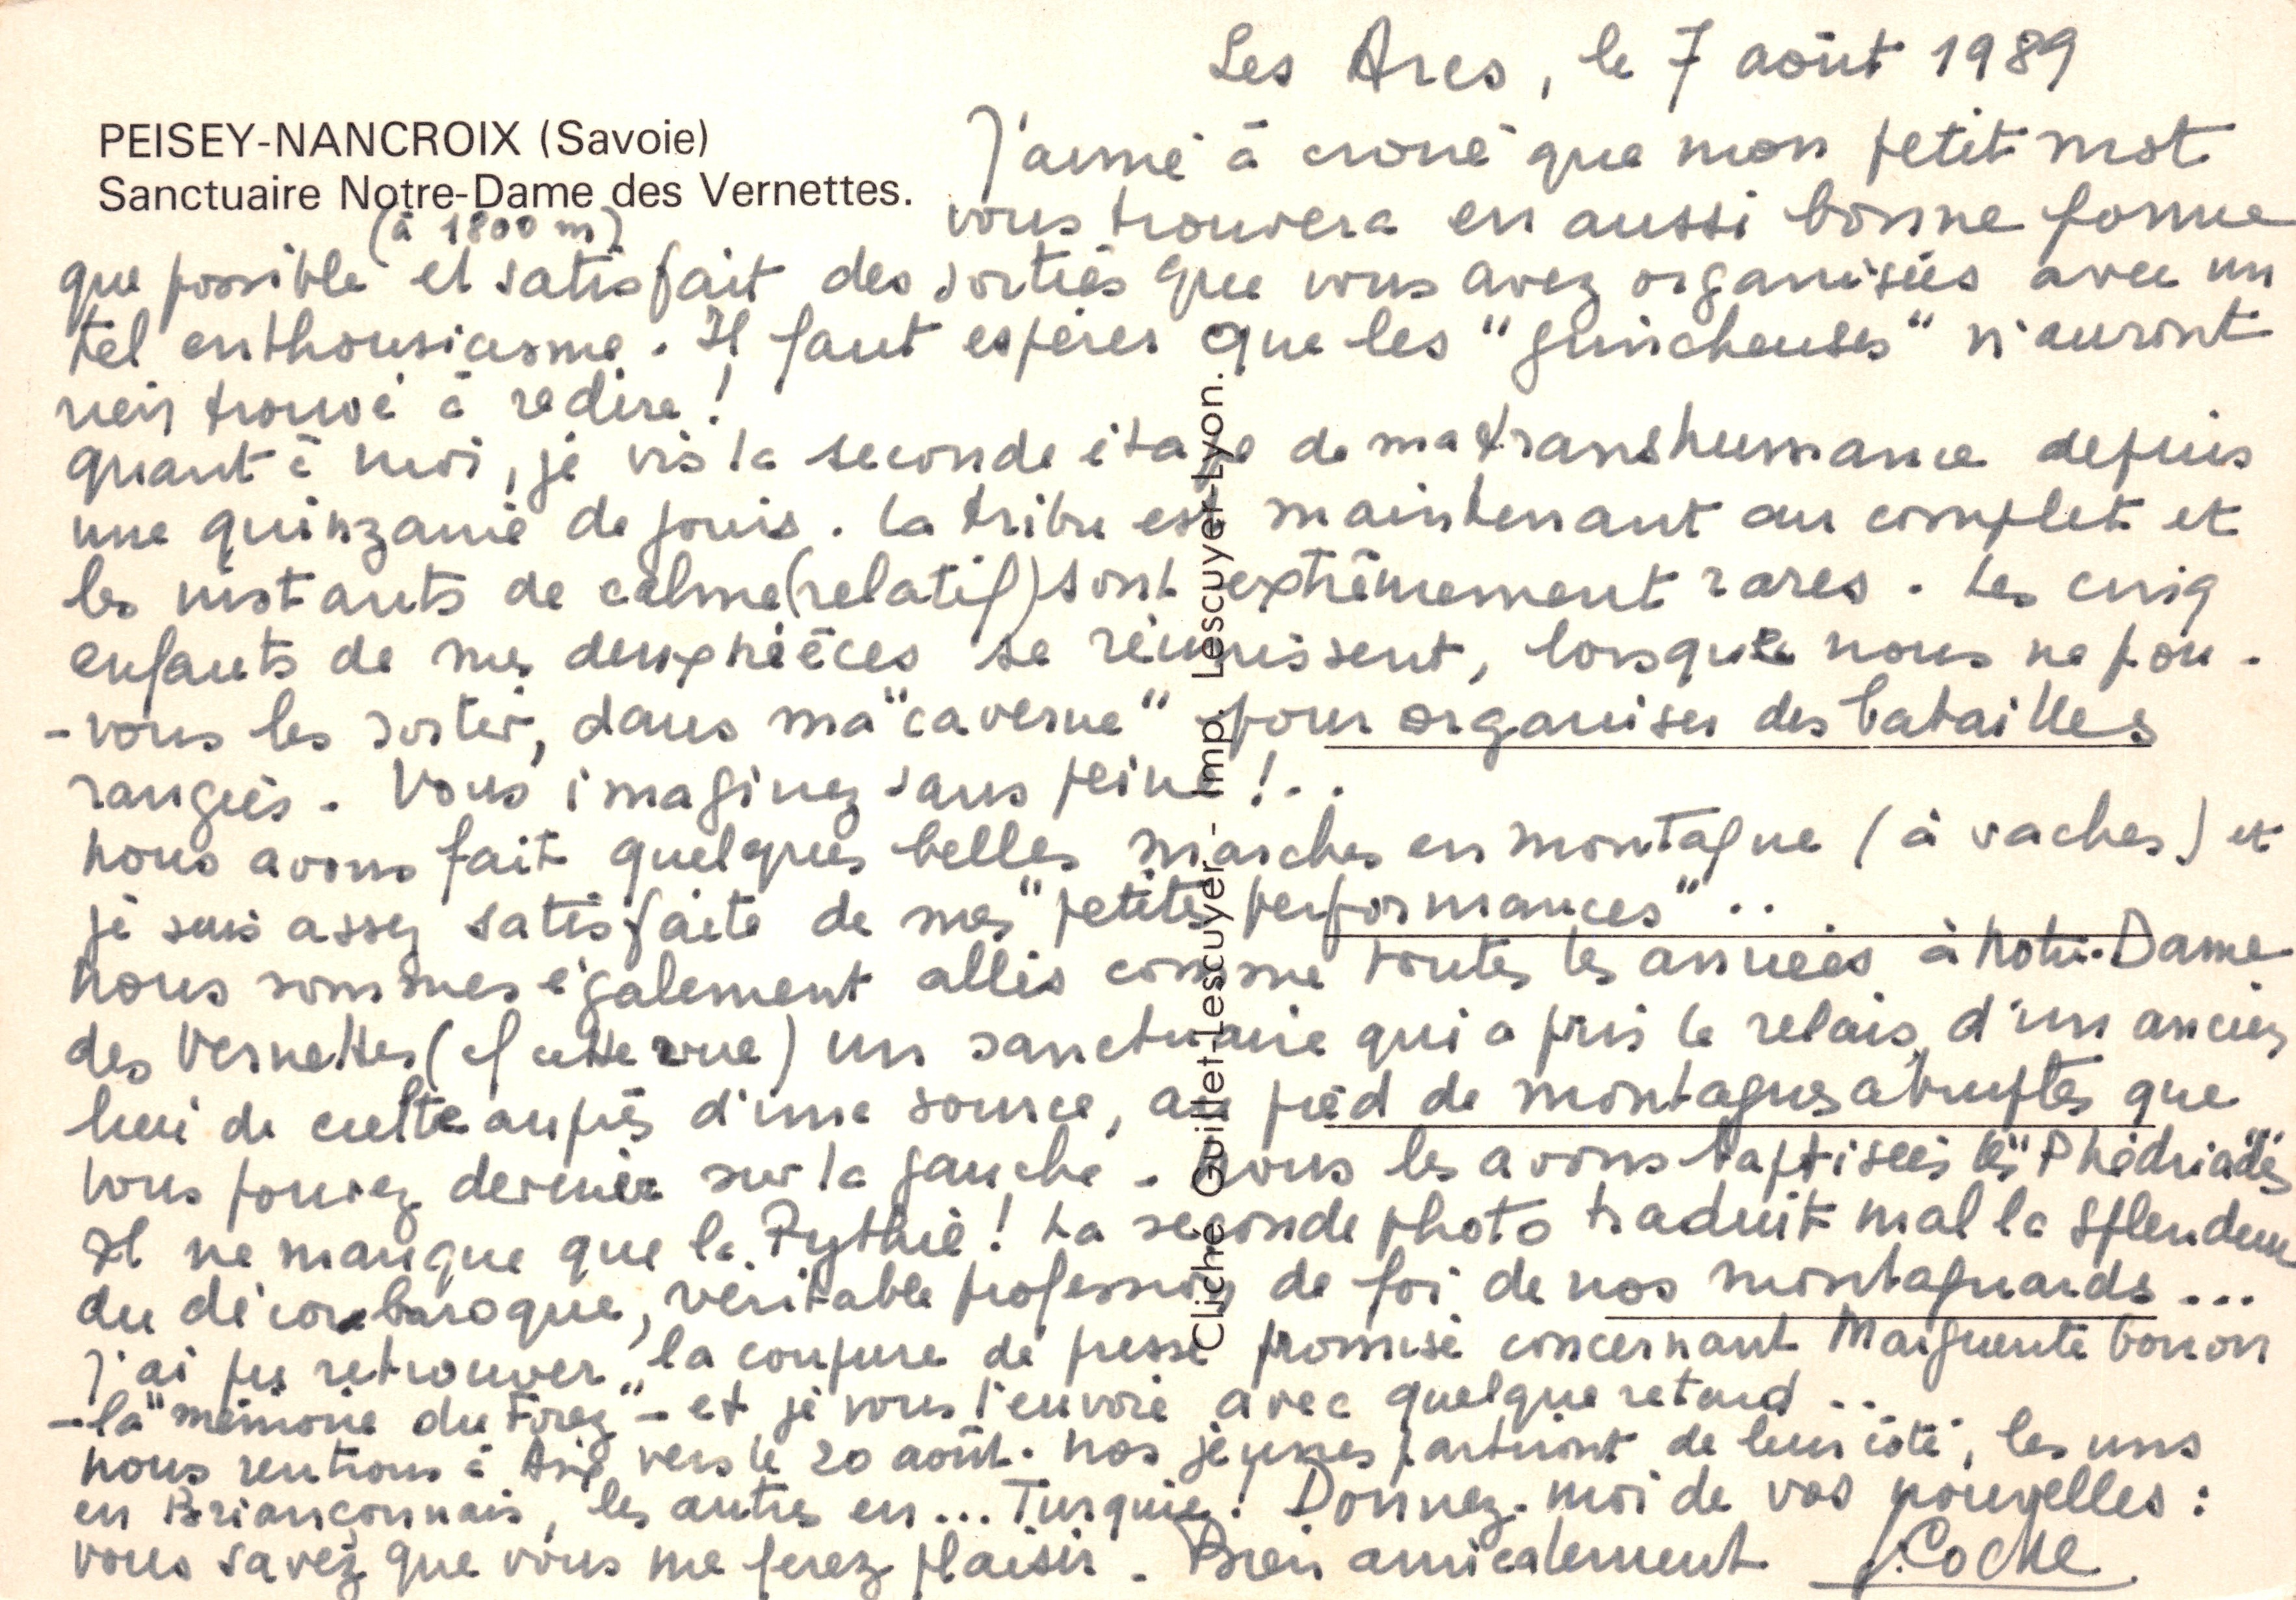 Les Arcs, le 7 août 1989
PEISEY-NANCROIX (Savoie)
Sanctuaire Notre-Dame des Vernettes.
(à 1800 m)
J'aime à croire que mon petit mot
vous trouvera en aussi bonne forme
que possible et satisfait des sorties que vous avez organisées avec un
tel enthousiasme. Il faut espérer que les "guincheuses" n'auront
rien trouvé à redire!
Quant à moi, je vis la seconde étape de ma transhumance depuis
une quinzaine de jours. La tribu est maintenant au complet et
les instants de calme (relatif) sont extrêmement rares. Les cinq
enfants de mes deux nièces se réunissent, lorsque nous ne pou-
-vons les sortir, dans ma "caverne" pour organiser des batailles
rangées. Vous imaginez sans peine!..
Nous avons fait quelques belles marches en montagne (à vaches) et
je suis assez satisfaite de mes "petites performances"..
Nous sommes également allés comme toutes les années à Notre-Dame
des Vernettes (cf cette vue) un sanctuaire qui a pris le relais d'un ancien
lieu de culte auprès d'une source, au pied de montagnes abruptes que
vous pouvez deviner sur la gauche. Nous les avons baptisées les "Phédriades"
Il ne manque que la Pythie! La seconde photo traduit mal la splendeur
du décor baroque, véritable profession de foi de nos montagnards...
J'ai pu retrouver la coupure de presse promise concernant Marguerite Gonon
-la "mémoire du Forez"- et je vous l'envoie avec quelque retard..
Nous rentrons à Aix vers le 20 août. Nos jeunes partiront de leur côté, les uns
en Briançonnais, les autres en... Turquie! Donnez-moi de vos nouvelles:
vous savez que vous me ferez plaisir. Bien amicalement J. Coche
Cliché Guillet-Lescuyer - Imp. Lescuyer-Lyon.